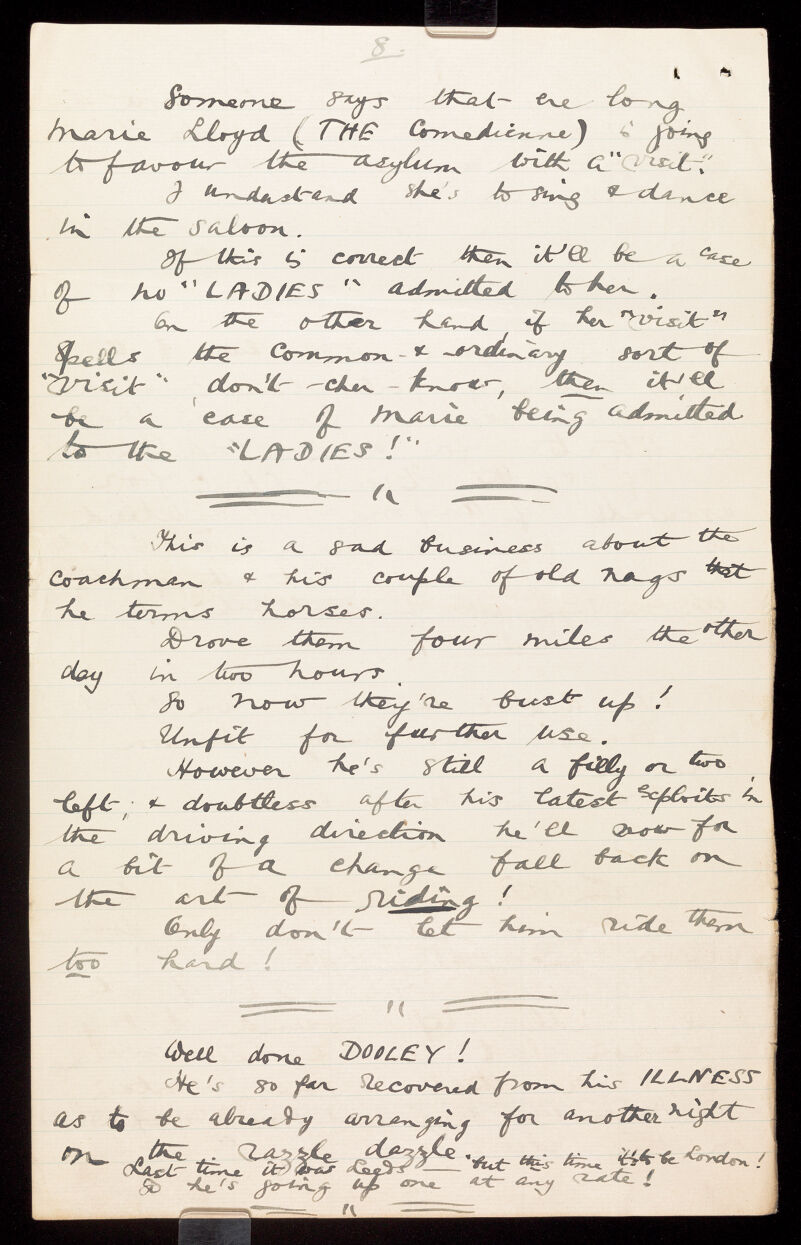 8.
Someone says that ere long
Marie Lloyd (THE Comedienne) is going
to favour the asylum with a "visit".
I understand she's to sing & dance
in the saloon.
If this is correct then it'll be a case
of no "LADIES" admitted to her.
On the other hand, if her "visit"
spells the common - & - ordinary sort of
"visit" don't - cher - know, then it'll
be a case of Marie being admitted
to the "LADIES!"
This is a sad business about the
coachman & his couple of old nags that
he terms horses.
Drove them four miles the other
day in two hours.
So now they're bust up!
Unfit for further use.
However he's still a filly or two
left, & doubtless after his latest exploits in
the driving direction he'll now for
a bit of a change fall back on
the art of riding!
Only don't let him ride them
too hard!
Well done DOOLEY!
He's so far recovered from his ILLNESS
as to be already arranging for another night
on the razzle dazzle.
Last time it was Leeds — but this time it's to be London!
So he's going up one at any rate!